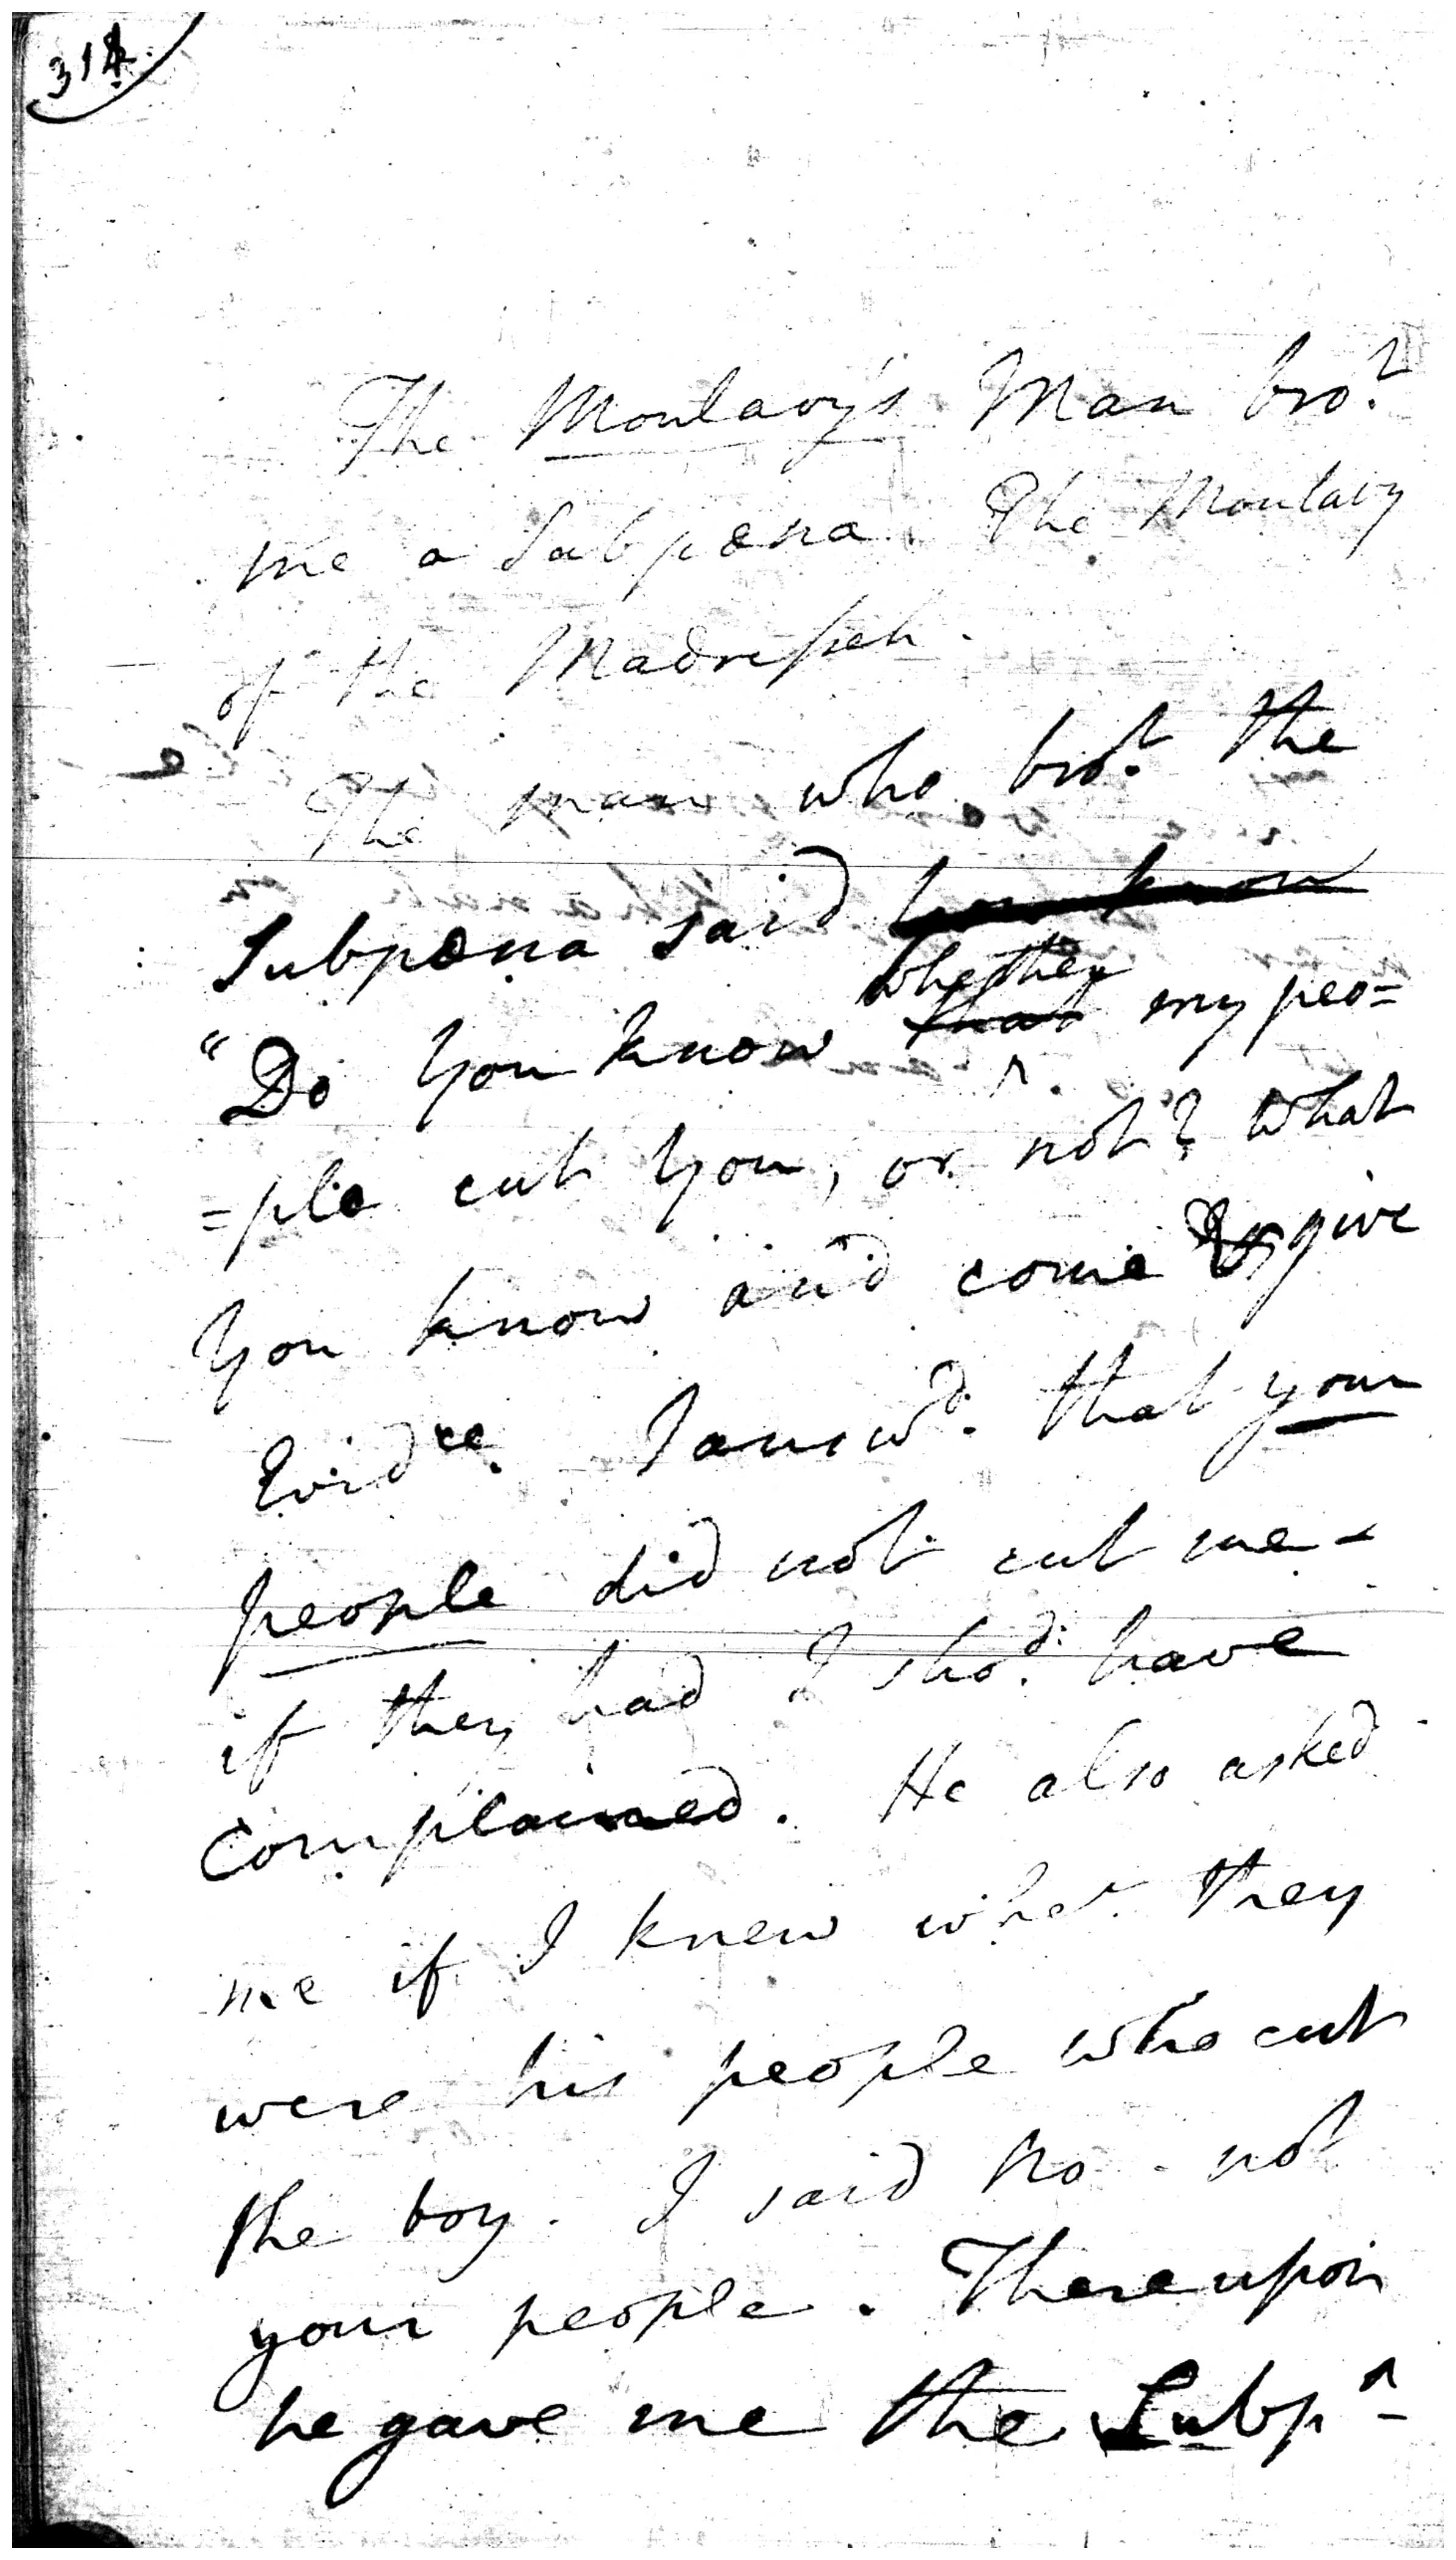 314.
The Moulavy's Man bro.t
me a Subpœna. The Moulavy
of the Madrissah.
The man who bro.t the
Subpœna said you know
whether
"Do you know that my peo=
=ple cut you, or not? What
you know and come & give
Evid.ce I answ.d that your
people did not cut me -
if they had I sho.d have
complained. He also asked
me if I knew what they
were his people who cut
the boy. I said No - not
your people. Thereupon
he gave me the Subp.a -